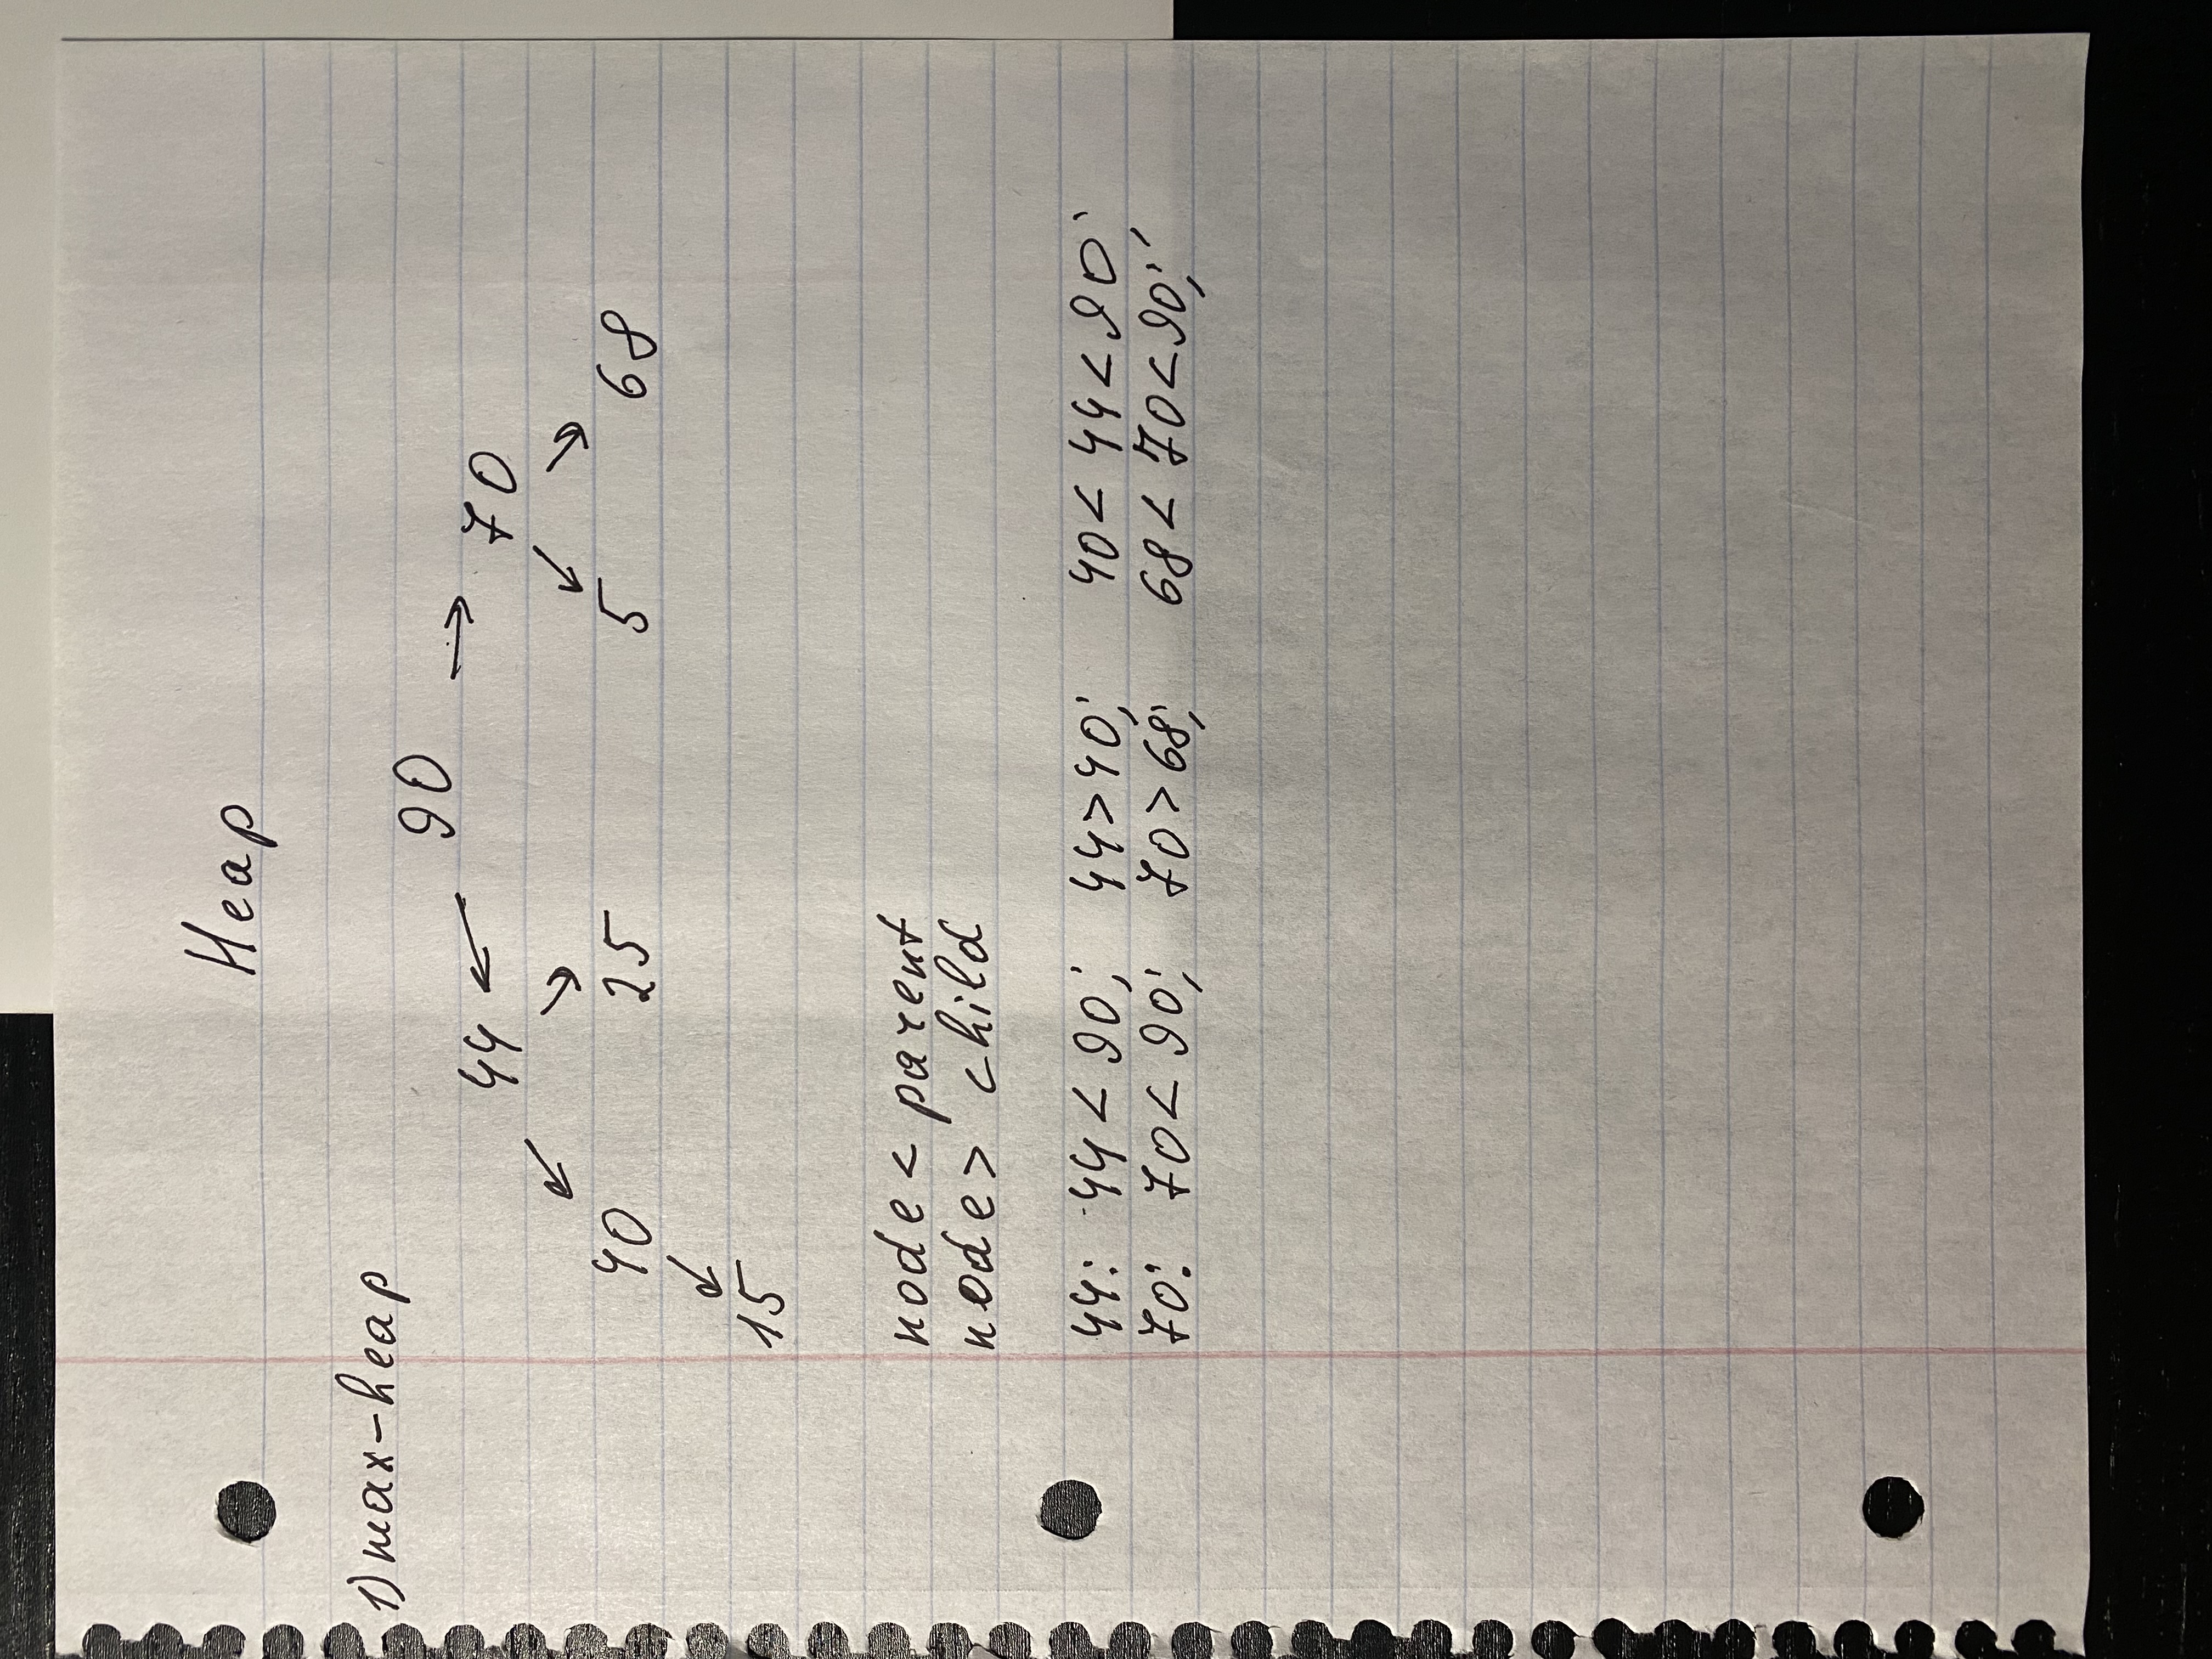 Heap
1) max-heap
90
44 ← → 70
↙ ↘ ↙ ↘
40 25 5 68
↙
15
node < parent
node > child
44: 44 < 90; 44 > 40; 40 < 44 < 90;
70: 70 < 90; 70 > 68; 68 < 70 < 90;